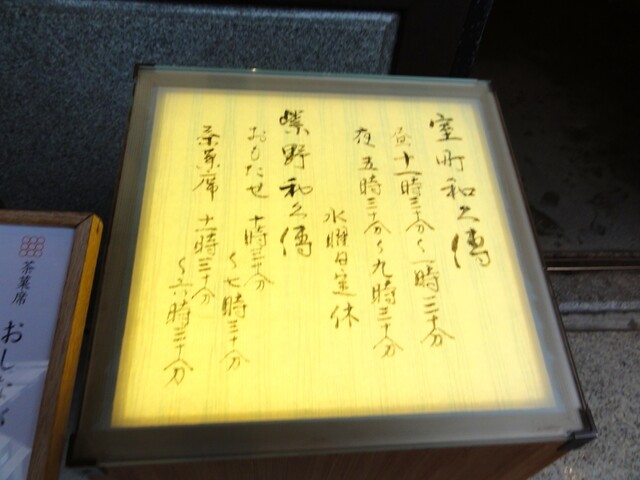 室町和久傳
昼 十一時三十分〜一時三十分
夜 五時三十分〜九時三十分
水曜日定休
紫野和久傳
おもたせ 十時三十分
〜七時三十分
茶菓席 十一時三十分
〜六時三十分
茶菓席
おしな